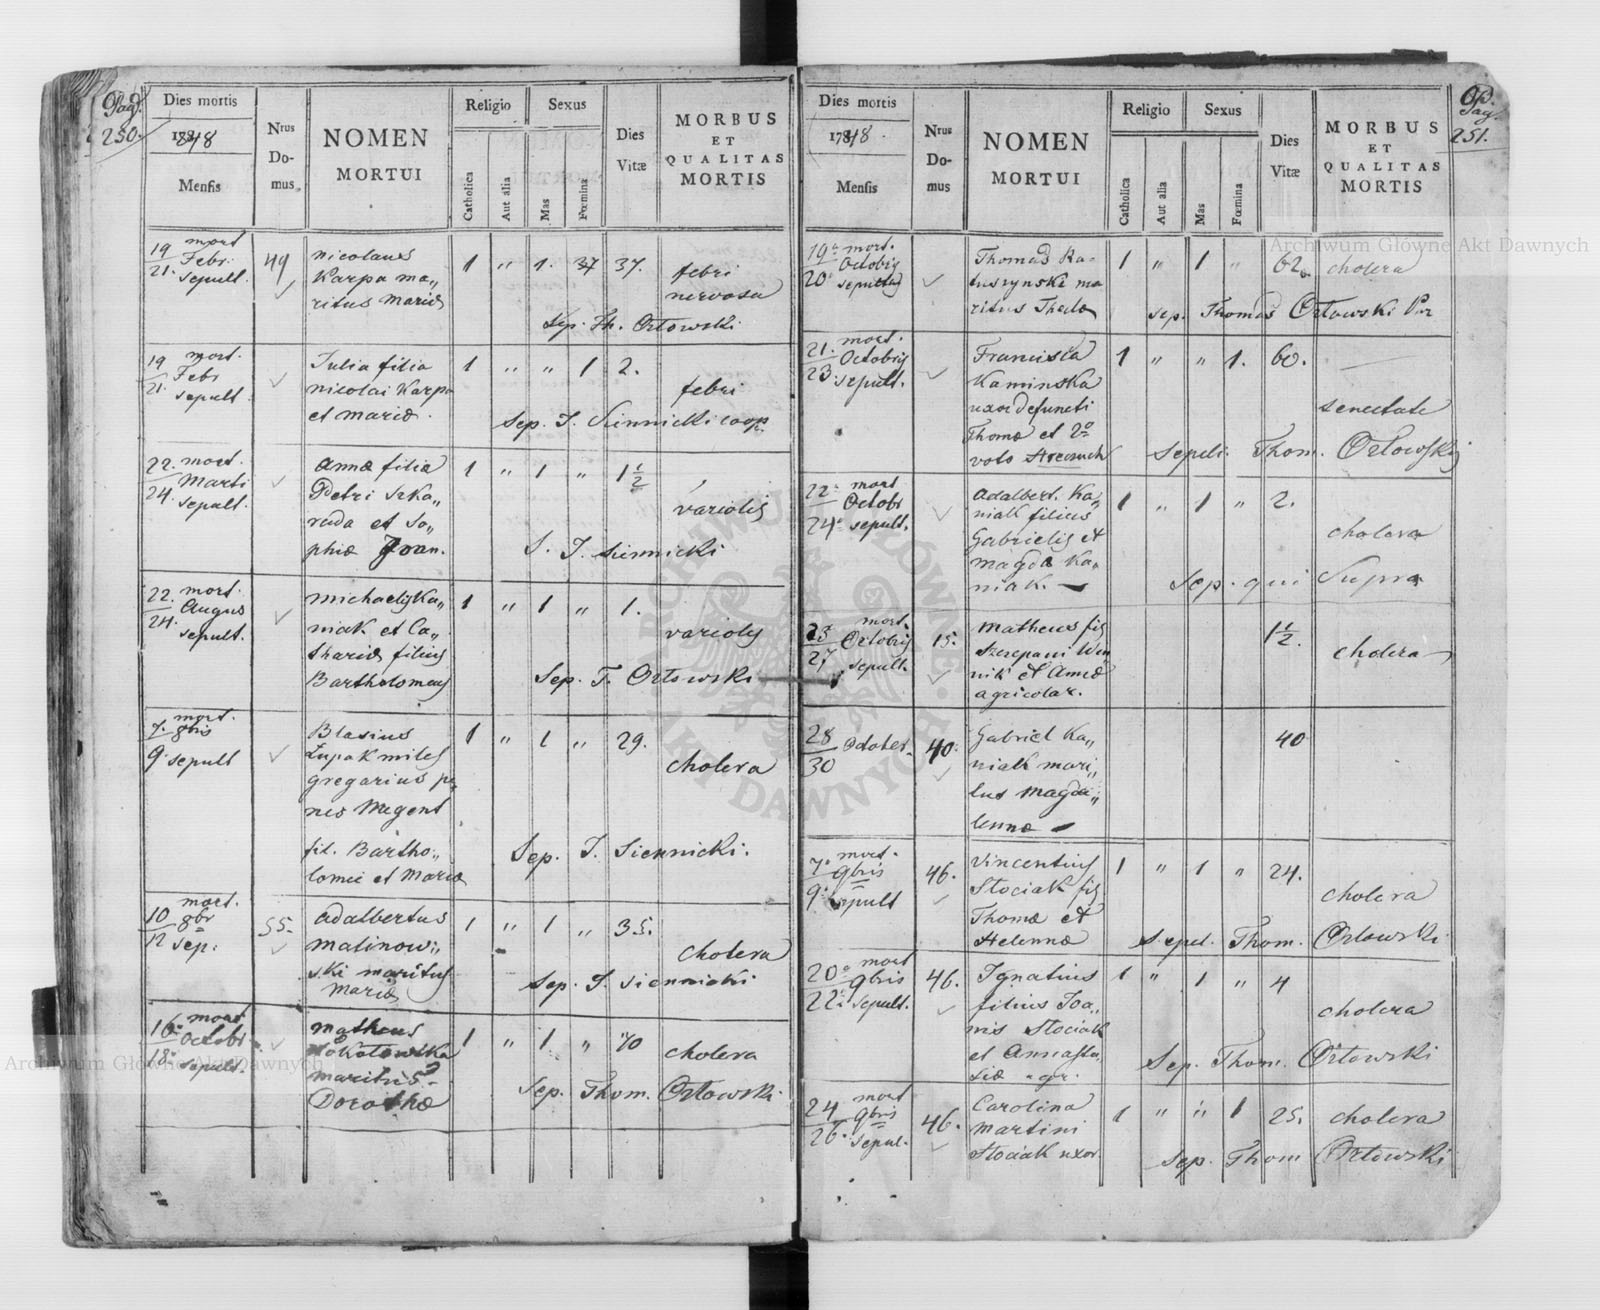 Pag.
250.
Dies mortis
1848
Mensis
Nrus
Do-
mus
NOMEN
MORTUI
Religio
Catholica
Aut alia
Sexus
Mas
Fœmina
Dies
Vitæ
MORBUS
ET
QUALITAS
MORTIS
19 mort
Febr.
21. sepult.
49
Nicolaus
Karpa ma„
ritus Mariæ
1 „ 1. 37 37.
febri
nervosa
Sep. Th. Orłowski
19 mort.
Febr
21. sepult
Julia filia
Nicolai Karpa
et Mariæ.
1 „ „ 1 2.
febri
Sep. J. Siennicki coop.
22. mort.
Marti
24. sepult.
Anna filia
Petri Szka„
rada et So„
phiæ
1 „ 1 „ 1 1/2
variolis
S. J. Siennicki
22. mort.
Augus
24. sepult.
Michaelis Ka„
niak et Ca„
thariæ filius
Bartholomeus
1 „ 1 „ 1.
variolis
Sep. T. Orłowski
7. mort.
8bris
9. sepult
Blasius
Łupak miles
gregarius pe„
nes Regent
fil. Bartho„
lomei et Mariæ
1 „ 1 „ 29.
cholera
Sep. J. Siennicki.
10 mort.
8br
12 Sep.
55.
Adalbertus
Malinow„
ski maritus
Mariæ
1 „ 1 „ 35.
cholera
Sep. J. Siennicki
16. mort
Octobr
18. sepult.
Matheus
maritus
Dorothæ
1 „ 1 „ 70
cholera
Sep. Thom. Orłowski.
Pag.
251.
Dies mortis
1848.
Mensis
Nrus
Do-
mus
NOMEN
MORTUI
Religio
Catholica
Aut alia
Sexus
Mas
Fœmina
Dies
Vitæ
MORBUS
ET
QUALITAS
MORTIS
19. mort.
Octobris
20 sepultus
Thomas Ra„
tuszynski ma
ritus Theclæ
1 „ 1 „ 62.
cholera
Sep. Thomas Orłowski
21. mort.
Octobris
23. sepult.
Francisca
Kaminska
uxor defuncti
Thomæ et 2o
voto
1 „ „ 1. 60.
senectute
Sepeli. Thom. Orłowski
22. mort
Octobr
24. sepult.
Adalbert. Ka„
niak filius
Gabrielis et
Magdæ Ka„
niak.
1 „ 1 „ 2.
cholera
Sep. qui Supra
25 mort.
Octobris
27 sepult.
15.
Matheus fis
Szczepani
et Annæ
agricolar.
1 1/2.
cholera
28
October.
30
40.
Gabriel Ka„
niak mari„
tus Magda„
lennæ
40
7. mort.
9bris
9. sepult
46.
Vincentius
Stociak fis
Thomæ et
Helennæ
1 „ 1 „ 24.
cholera
Sepel. Thom. Orłowski
20. mort
9bris
22. sepult.
46.
Ignatius
filius Joa„
nis Stociak
et Annasta„
siæ agr.
1 „ 1 „ 4
cholera
Sep. Thom. Orłowski
24 mort
9bris
26. sepul.
46.
Carolina
Martini
Stociak uxor
1 „ „ 1 25.
cholera
Sep. Thom Orłowski
Archiwum Główne Akt Dawnych
Archiwum Główne Akt Dawnych
ARCHIWUM GŁÓWNE AKT DAWNYCH